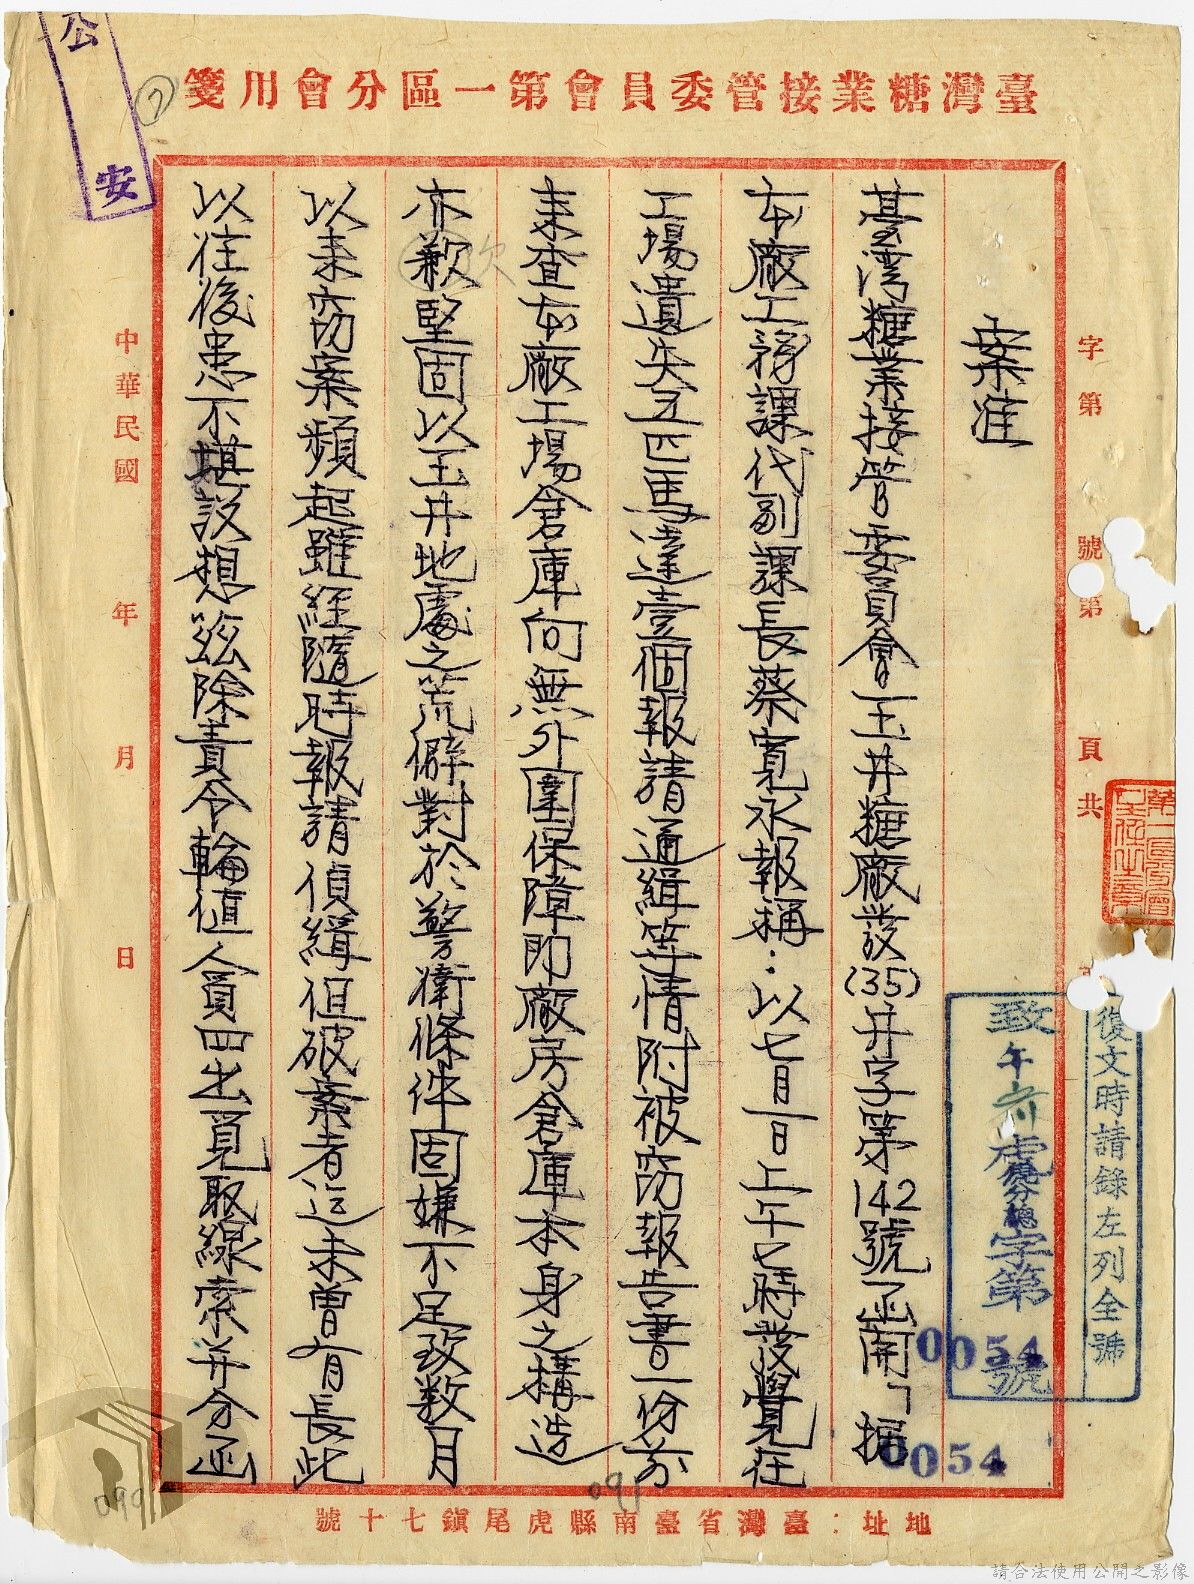 臺灣糖業接管委員會第一區分會用箋
公安
7
字第　號第　頁共
復文時請錄左列全號
致午虎分總字第0054號
0054
案准
臺湾糖業接管委員会玉井糖廠发(35)井字第142號函開「据
本廠工務課代副課長蔡寬永報稱：以七月一日上午七時发覺在
工場遺失五匹馬達壹個報請通緝等情附被窃報告書一份前
来查本廠工場倉庫向無外圍保障即廠房倉庫本身之構造
亦歉堅固以玉井地處之荒僻對於警衛條件固嫌不足致数月
欠
以来窃案頻起雖經隨時報請偵緝但破案者迄未曾有長此
以往後患不堪設想茲除責令輪值人員四出覓取線索并分函
中華民國　年　月　日
地址：臺灣省臺南縣虎尾鎮七十號
091
090
請合法使用公開之影像